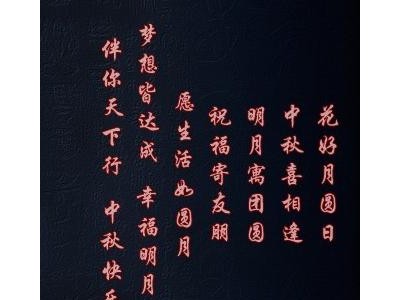 花好月圆日
中秋喜相逢
明月寓团圆
祝福寄友朋
愿生活如圆月
梦想皆达成 幸福明月
伴你天下行 中秋快乐